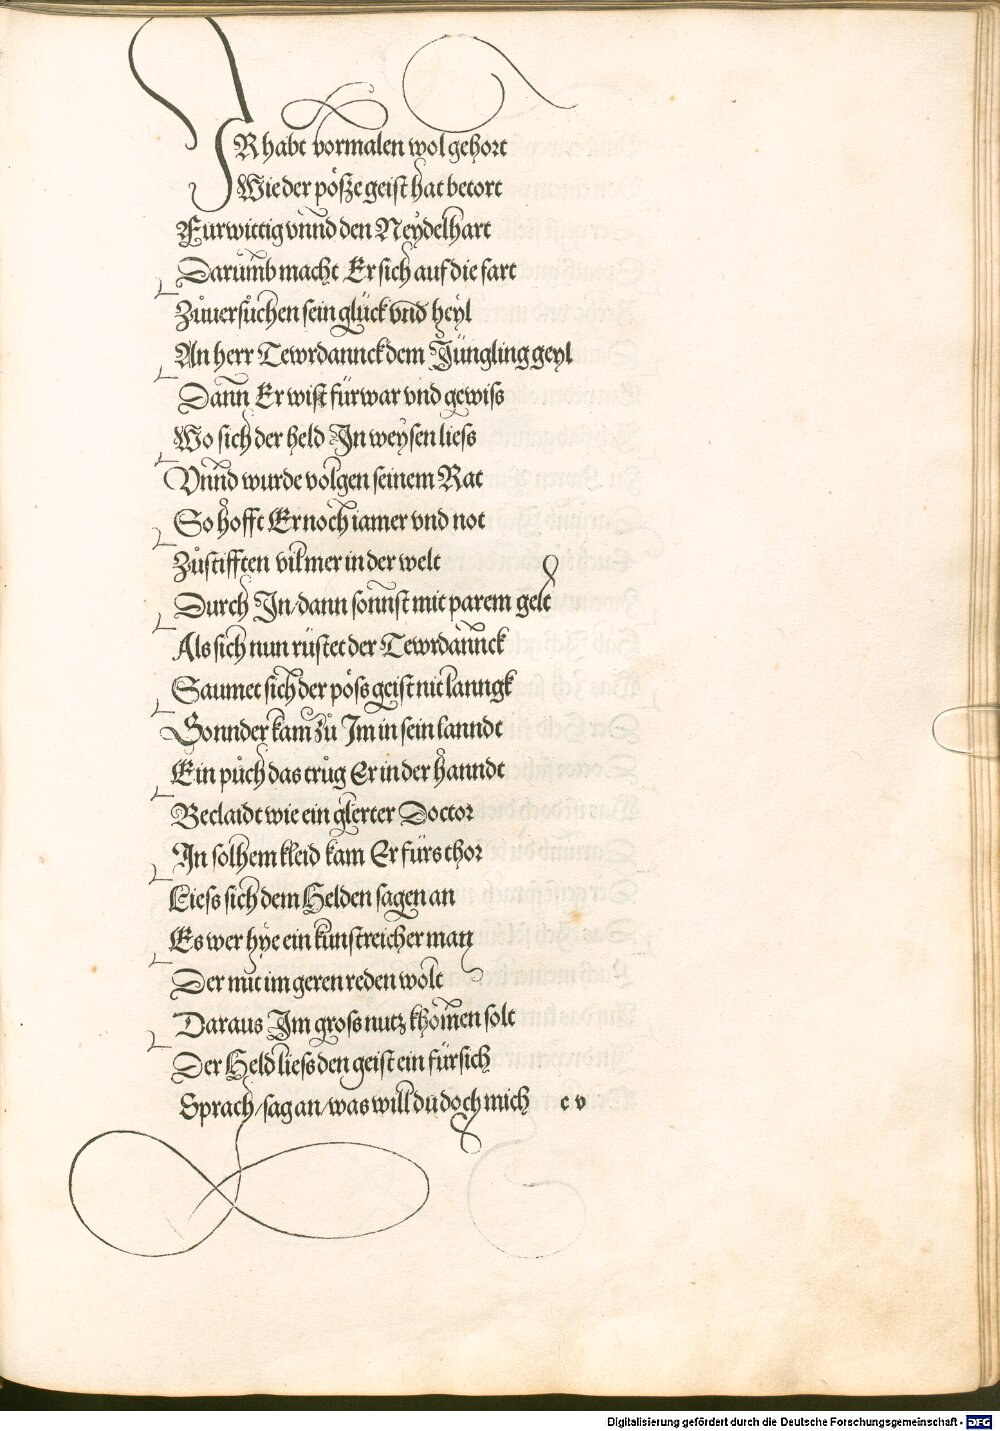 IR habt vormalen wol gehort
Wie der pösze geist hat betort
Furwittig vnnd den Neydelhart
Darumb macht Er sich auf die fart
Zůuersůchen sein glück vnd heyl
An herr Tewrdannck dem Jüngling geyl
Dann Er wist fürwar vnd gewiss
Wo sich der held In weysen liess
Vnnd wurde volgen seinem Rat
So hofft Er noch iamer vnd not
Zůstifften vil mer in der welt
Durch In/dann sonnst mit parem gelt
Als sich nun rüstet der Tewrdannck
Saumet sich der pöss geist nit lanngk
Sonnder kam zů Im in sein lanndt
Ein půch das trůg Er in der hanndt
Beclaidt wie ein glerter Doctor
In solhem kleid kam Er fürs thor
Liess sich dem Helden sagen an
Es wer hye ein kunstreicher man
Der mit im geren reden wolt
Daraus Im gross nutz khomen solt
Der Held liess den geist ein für sich
Sprach/sag an/was will du doch mich c v
Digitalisierung gefördert durch die Deutsche Forschungsgemeinschaft - DFG